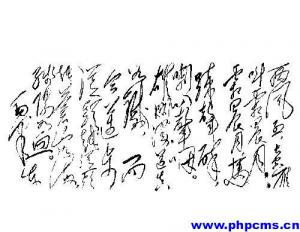 西风烈长空雁
叫霜晨月
霜晨月马
蹄声碎
喇叭声咽
雄关漫道真
如铁而
今迈步
从头越
苍山如海
残阳如血
www.phpcms.cn